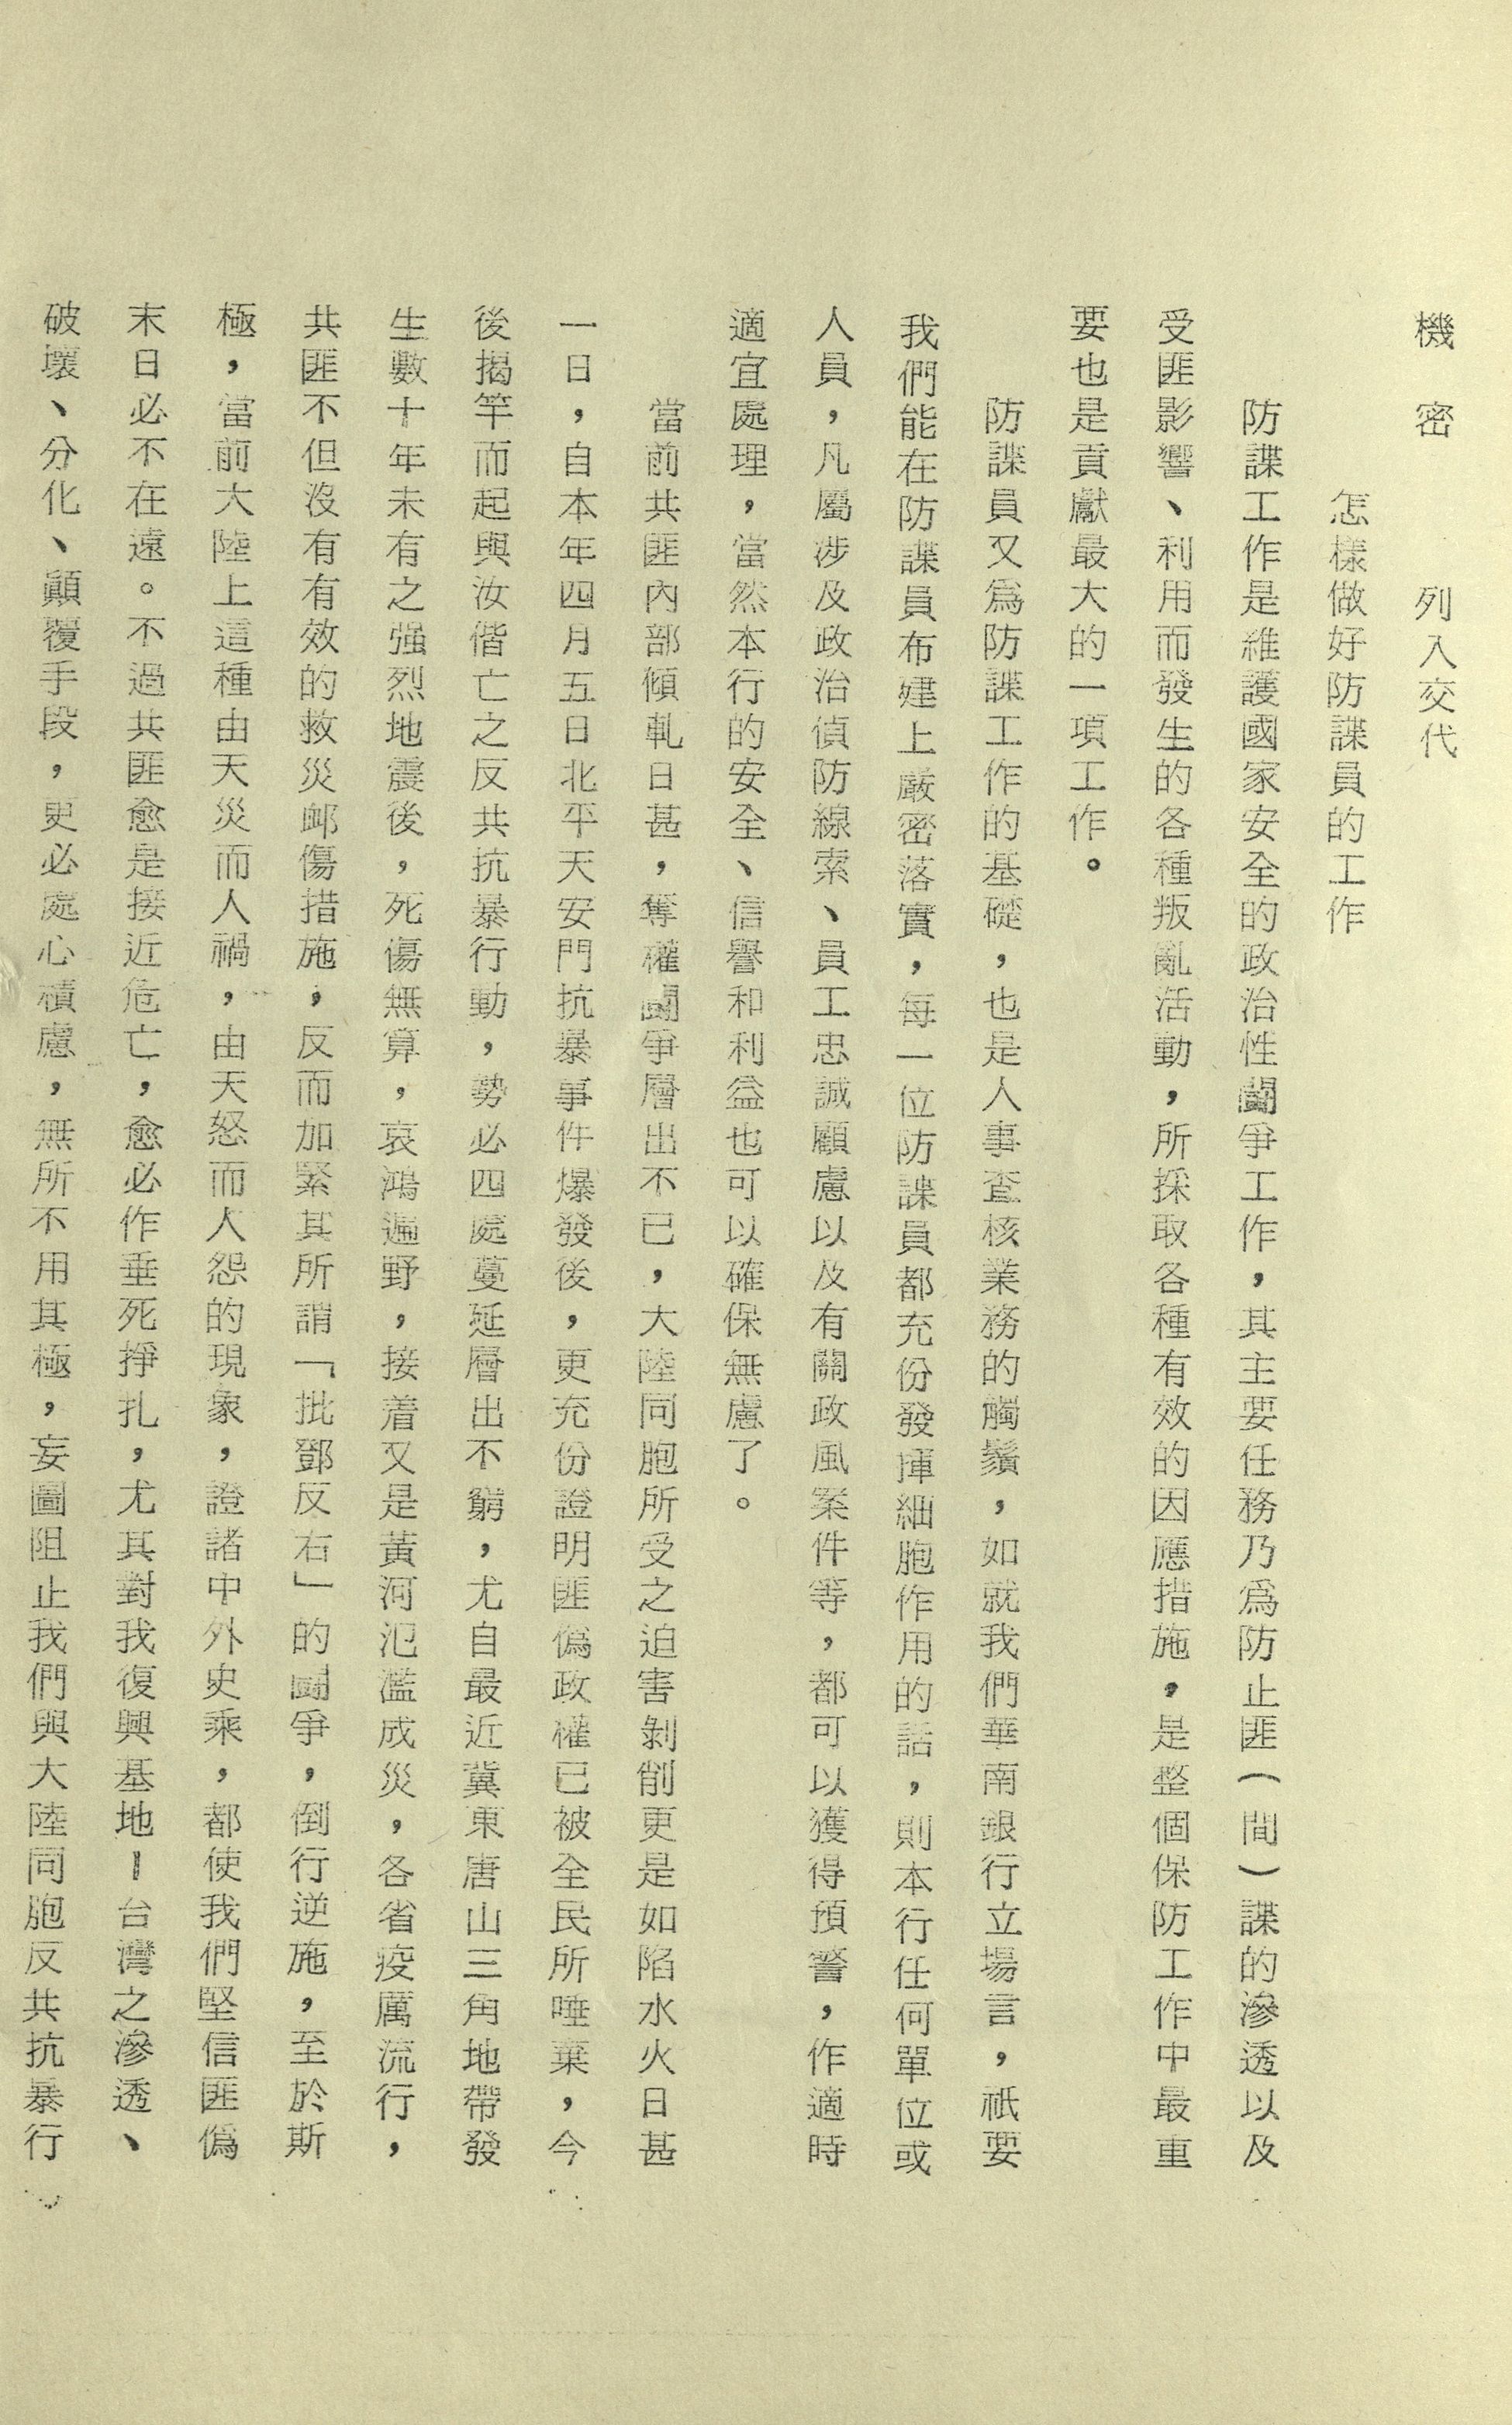 機密　列入交代
怎樣做好防諜員的工作
防諜工作是維護國家安全的政治性鬪爭工作，其主要任務乃爲防止匪（間）諜的滲透以及
受匪影響、利用而發生的各種叛亂活動，所採取各種有效的因應措施，是整個保防工作中最重
要也是貢獻最大的一項工作。
防諜員又爲防諜工作的基礎，也是人事查核業務的觸鬚，如就我們華南銀行立場言，祇要
我們能在防諜員布建上嚴密落實，每一位防諜員都充份發揮細胞作用的話，則本行任何單位或
人員，凡屬涉及政治偵防線索、員工忠誠顧慮以及有關政風案件等，都可以獲得預警，作適時
適宜處理，當然本行的安全、信譽和利益也可以確保無慮了。
當前共匪內部傾軋日甚，奪權鬪爭層出不已，大陸同胞所受之迫害剝削更是如陷水火日甚
一日，自本年四月五日北平天安門抗暴事件爆發後，更充份證明匪僞政權已被全民所唾棄，今
後揭竿而起與汝偕亡之反共抗暴行動，勢必四處蔓延層出不窮，尤自最近冀東唐山三角地帶發
生數十年未有之强烈地震後，死傷無算，哀鴻遍野，接着又是黃河氾濫成災，各省疫厲流行，
共匪不但沒有有效的救災邺傷措施，反而加緊其所謂「批鄧反右」的鬪爭，倒行逆施，至於斯
極，當前大陸上這種由天災而人禍，由天怒而人怨的現象，證諸中外史乘，都使我們堅信匪僞
末日必不在遠。不過共匪愈是接近危亡，愈必作垂死掙扎，尤其對我復興基地－台灣之滲透、
破壞、分化、顚覆手段，更必處心積慮，無所不用其極，妄圖阻止我們與大陸同胞反共抗暴行